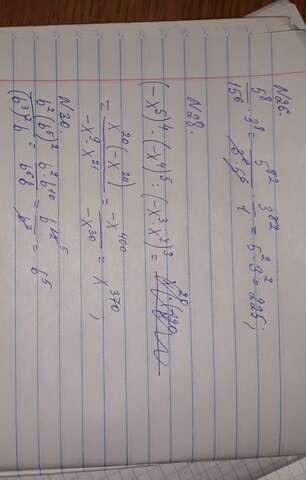 N26.
5⁸ · 3⁸ / 15⁶ = 5⁸ ² 3⁸ ² / 3⁶·5⁶ 1 = 5² · 3² = 225;
N28.
(-x⁵)⁴ · (-x⁴)⁵ : (-x³·x²)³ =
= x²⁰·(-x²⁰) / -x⁹·x²¹ = -x⁴⁰⁰ / -x³⁰ = x³⁷⁰;
N30.
b²(b⁵)² / (b³)²b = b²·b¹⁰ / b⁶b = b¹² ⁵ / b⁷ = b⁵